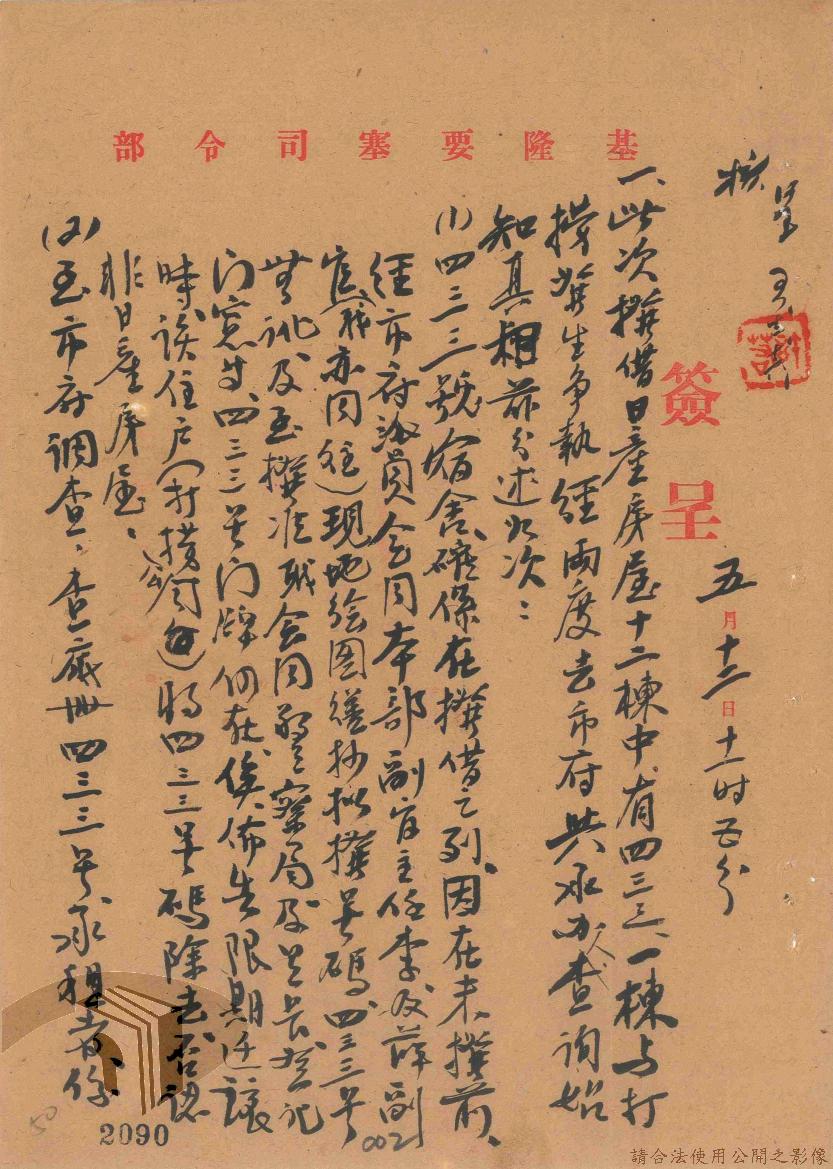 基隆要塞司令部
核呈
簽呈
五月十二日十一时五分
一、此次撥借日產房屋十二棟中、有四三三、一棟与打
撈 發生爭執經兩度去市府與承办人查詢始
知真相茲分述如次：
(1)四三三號宿舍確係在撥借之列、因在未撥前、
經市府派員会同本部副官主任李及薛副
官(我亦同往)現地绘图繕抄拟撥号码四三三号
無訛及至撥准我会同警察局及里長登記
门窓时、四三三号门牌仍在、俟佈告限期迁讓
時、该住戶(打撈 )將四三三号碼除去、否認
非日產房屋、
(2)至市府調查、查底册四三三号承租者係
002
50
2090
請合法使用公開之影像